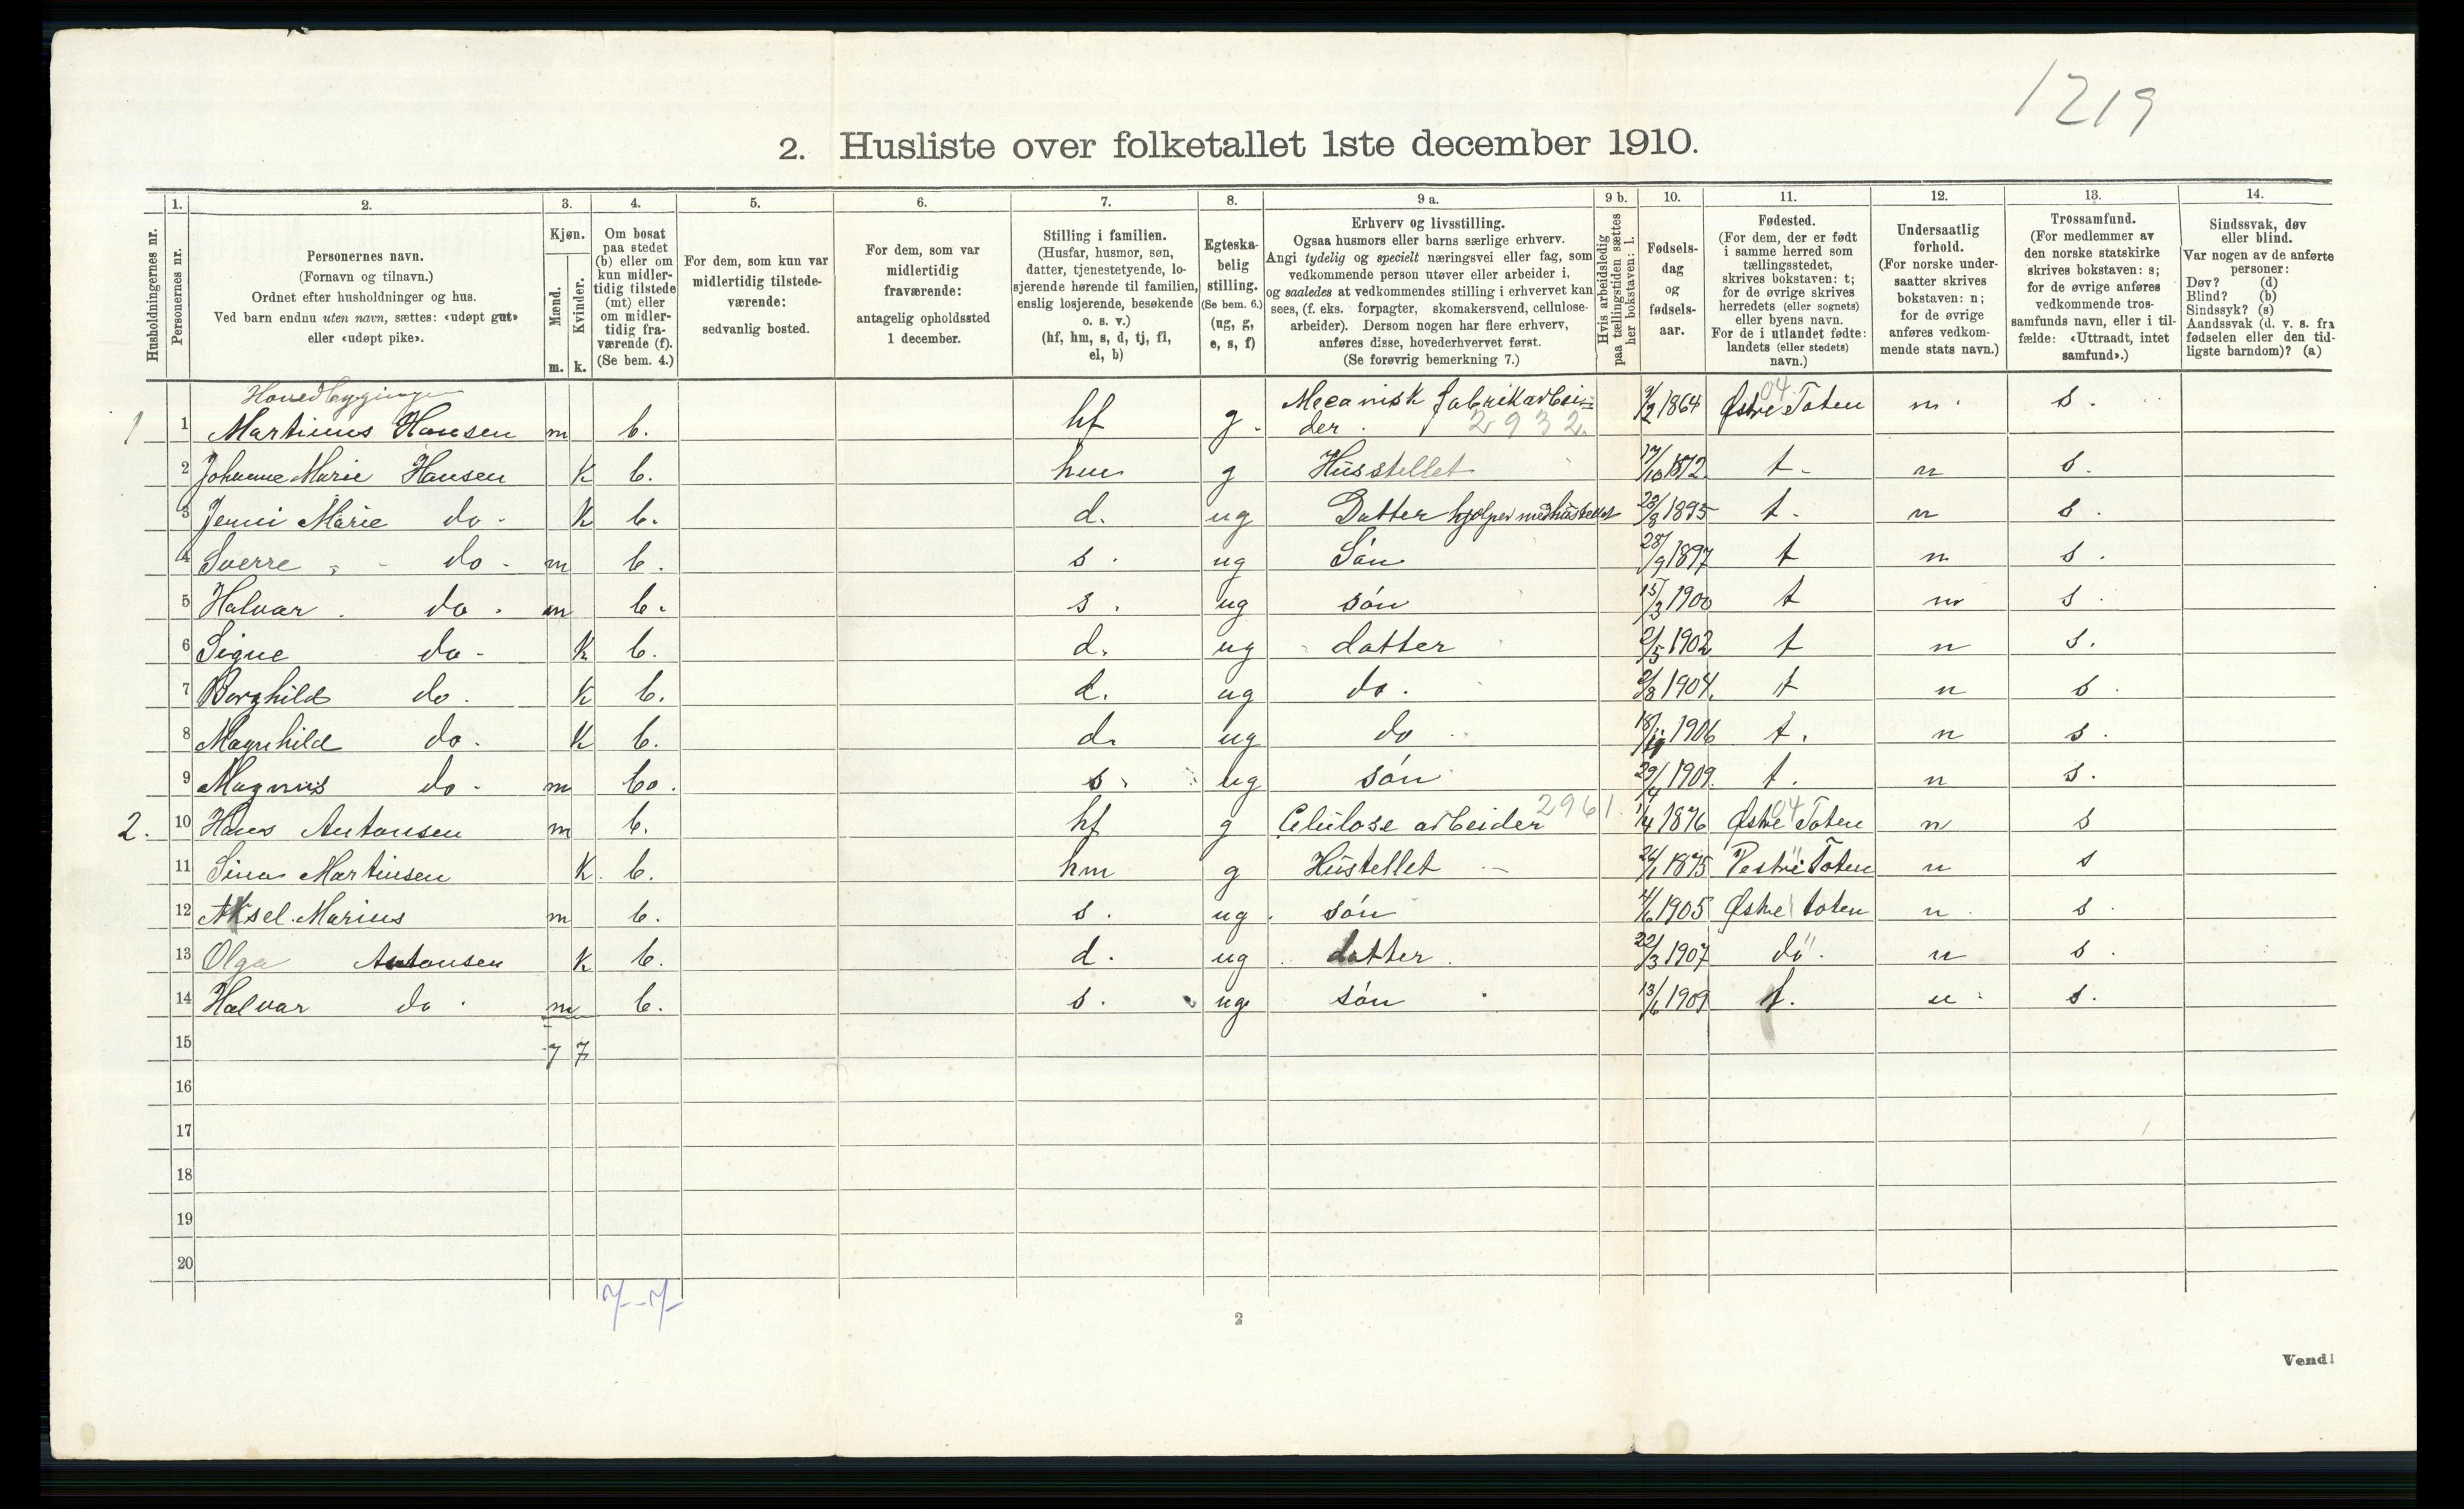 1219
2. Husliste over folketallet 1ste december 1910.
Husholdningernes nr.
1.
Personernes nr.
2.
Personernes navn.
(Fornavn og tilnavn.)
Ordnet efter husholdninger og hus.
Ved barn endnu uten navn, sættes: «udøpt gut»
eller «udøpt pike».
3.
Kjøn.
Mænd.
Kvinder.
m. k.
4.
Om bosat
paa stedet
(b) eller om
kun midler-
tidig tilstede
(mt) eller
om midler-
tidig fra-
værende (f).
(Se bem. 4.)
5.
For dem, som kun var
midlertidig tilstede-
værende:
sedvanlig bosted.
6.
For dem, som var
midlertidig
fraværende:
antagelig opholdssted
1 december.
7.
Stilling i familien.
(Husfar, husmor, søn,
datter, tjenestetyende, lo-
sjerende hørende til familien,
enslig losjerende, besøkende
o. s. v.)
(hf, hm, s, d, tj, fl,
el, b)
8.
Egteska-
belig
stilling.
(Se bem. 6.)
(ug, g,
e, s, f)
9 a.
Erhverv og livsstilling.
Ogsaa husmors eller barns særlige erhverv.
Angi tydelig og specielt næringsvei eller fag, som
vedkommende person utøver eller arbeider i,
og saaledes at vedkommendes stilling i erhvervet kan
sees, (f. eks. forpagter, skomakersvend, cellulose-
arbeider). Dersom nogen har flere erhverv,
anføres disse, hovederhvervet først.
(Se forøvrig bemerkning 7.)
9 b.
Hvis arbeidsledig
paa tællingstiden sættes
her bokstaven: l.
10.
Fødsels-
dag
og
fødsels-
aar.
11.
Fødested.
(For dem, der er født
i samme herred som
tællingsstedet,
skrives bokstaven: t;
for de øvrige skrives
herredets (eller sognets)
eller byens navn.
For de i utlandet fødte:
landets (eller stedets)
navn.)
12.
Undersaatlig
forhold.
(For norske under-
saatter skrives
bokstaven: n;
for de øvrige
anføres vedkom-
mende stats navn.)
13.
Trossamfund.
(For medlemmer av
den norske statskirke
skrives bokstaven: s;
for de øvrige anføres
vedkommende tros-
samfunds navn, eller i til-
fælde: «Uttraadt, intet
samfund».)
14.
Sindssvak, døv
eller blind.
Var nogen av de anførte
personer:
Døv? (d)
Blind? (b)
Sindssyk? (s)
Aandssvak (d. v. s. fra
fødselen eller den tid-
ligste barndom)? (a)
Hovedbygning
Mecanisk fabrikarbei= 04
1 1 Martinus Hansen m b. hf g. der. 2932. 9/2 1864 Østre Toten n. s.
2 Johanne Marie Hansen K b. hm g Husstellet 17/10 1872. t. n s.
3 Jenni Marie do. K b. d. ug Datter hjelper med hustellet 23/8 1895 t. n s.
4 Sverre " do. m b. s. ug Søn 28/9 1897 t n s.
5 Halvar. do. m b. s. ug søn 15/3 1900 t n s.
6 Signe do. K b. d. ug datter 2/5 1902 t n s.
7 Borghild do. K b. d. ug do. 2/8 1904. t n s.
8 Magnhild do. K b. d. ug do 1906 t. n s.
9 Magnus do. m b. s. ug søn 29/4 1909. t. n s.
2. 10 Hans Antonsen m b. hf g Celulose arbeider 2961. 1/4 1876 Østre 04 Toten n s
11 Sina Martinsen K. b. hm g Hustellet 26/1 1875 Vestre Toten n s
12 Aksel Marius m b. s. ug. søn 4/6 1905 Østre toten n. s.
13 Olga Antonsen K b. d. ug. datter. 22/3 1907 do". n s.
14 Halvar do. m b. s. ug søn 13/6 1909 t. n. s.
15 7 7
16
17
18
19
20
7-7-
2
Vend!